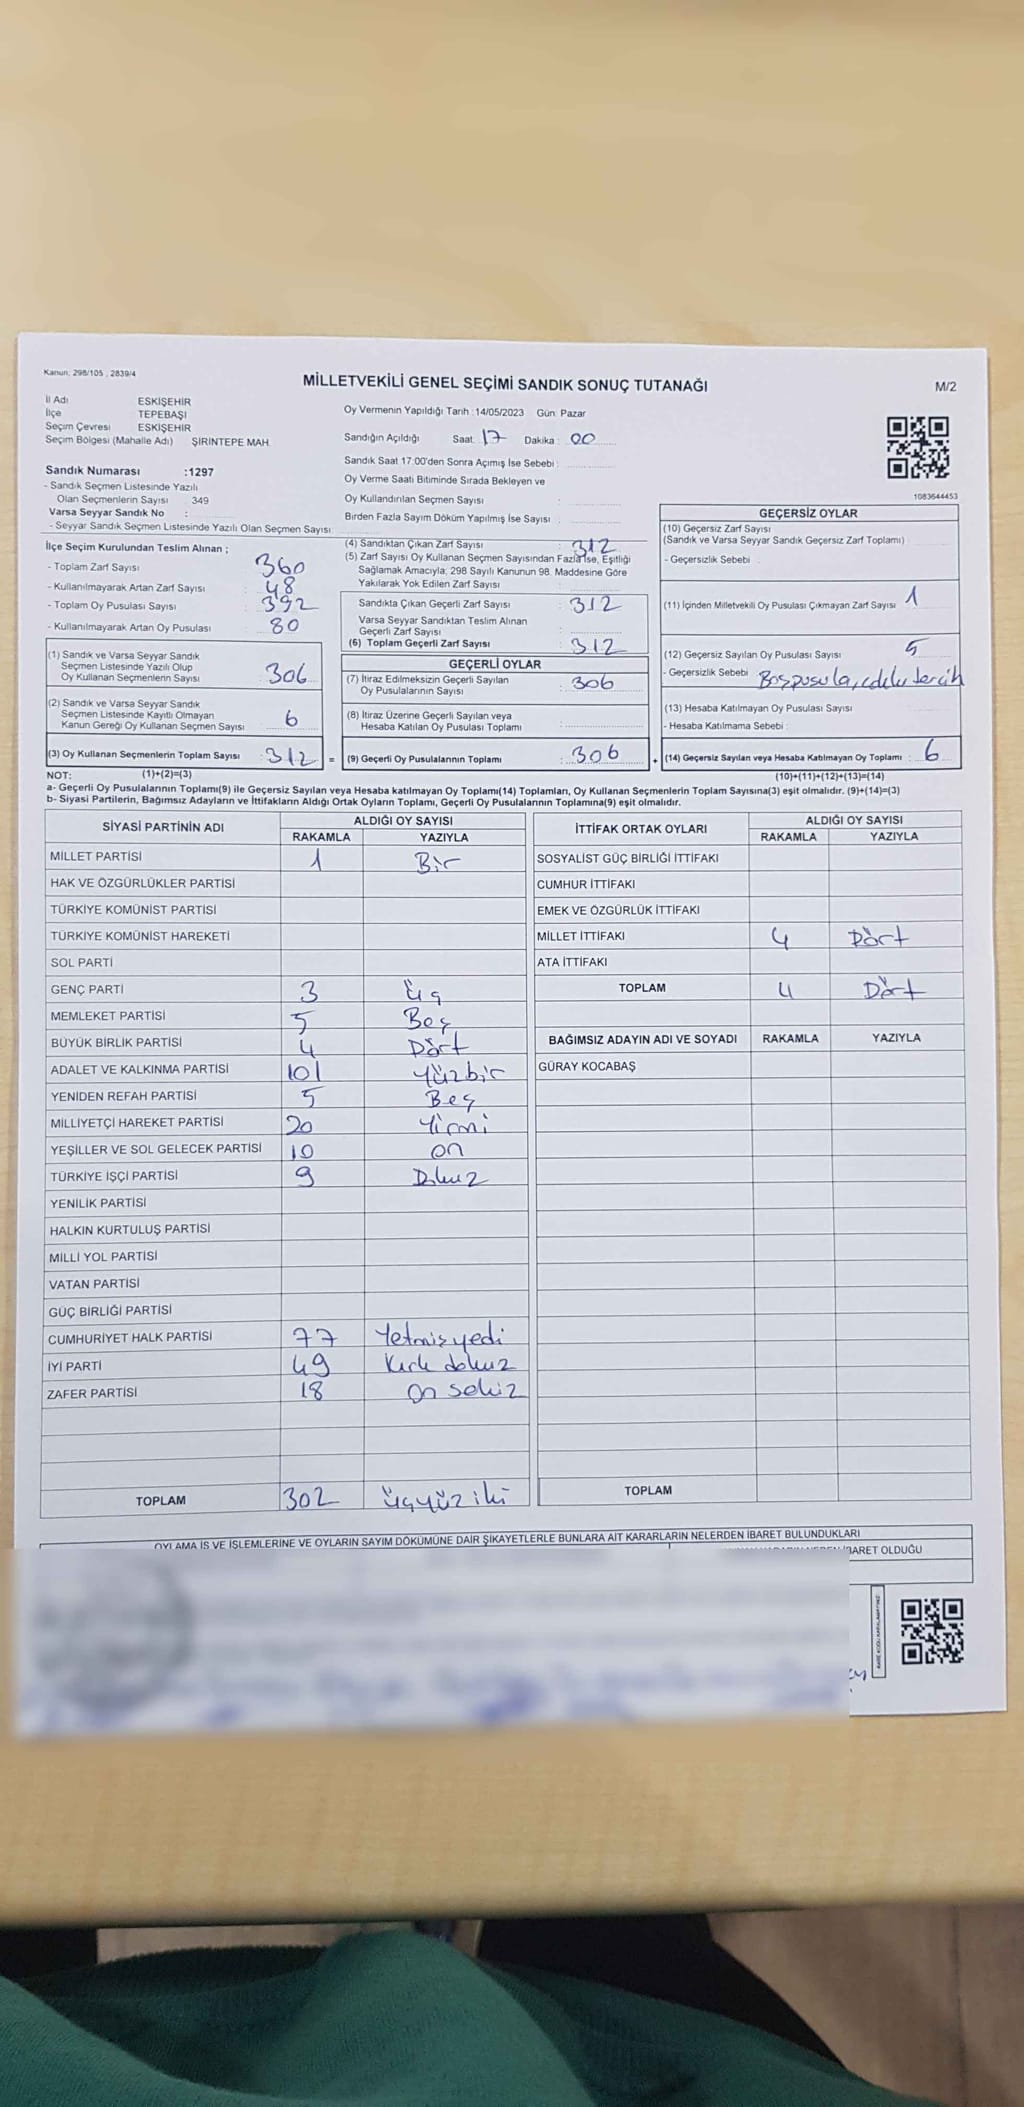 Kanun: 298/105 , 2839/4
MİLLETVEKİLİ GENEL SEÇİMİ SANDIK SONUÇ TUTANAĞI
M/2
İl Adı ESKİŞEHİR
İlçe TEPEBAŞI
Seçim Çevresi ESKİŞEHİR
Seçim Bölgesi (Mahalle Adı) ŞİRİNTEPE MAH.
Oy Vermenin Yapıldığı Tarih :14/05/2023 Gün: Pazar
Sandığın Açıldığı Saat: 17 Dakika : 00
Sandık Saat 17:00'den Sonra Açımış İse Sebebi :
Oy Verme Saati Bitiminde Sırada Bekleyen ve
Oy Kullandırılan Seçmen Sayısı :
Birden Fazla Sayım Döküm Yapılmış İse Sayısı :
1083644453
Sandık Numarası :1297
- Sandık Seçmen Listesinde Yazılı
Olan Seçmenlerin Sayısı : 349
Varsa Seyyar Sandık No :
- Seyyar Sandık Seçmen Listesinde Yazılı Olan Seçmen Sayısı:
İlçe Seçim Kurulundan Teslim Alınan ;
- Toplam Zarf Sayısı : 360
- Kullanılmayarak Artan Zarf Sayısı : 48
- Toplam Oy Pusulası Sayısı : 392
- Kullanılmayarak Artan Oy Pusulası : 80
(1) Sandık ve Varsa Seyyar Sandık
Seçmen Listesinde Yazılı Olup
Oy Kullanan Seçmenlerin Sayısı : 306
(2) Sandık ve Varsa Seyyar Sandık
Seçmen Listesinde Kayıtlı Olmayan
Kanun Gereği Oy Kullanan Seçmen Sayısı : 6
(3) Oy Kullanan Seçmenlerin Toplam Sayısı : 312 =
(4) Sandıktan Çıkan Zarf Sayısı : 312
(5) Zarf Sayısı Oy Kullanan Seçmen Sayısından Fazla İse, Eşitliği
Sağlamak Amacıyla; 298 Sayılı Kanunun 98. Maddesine Göre
Yakılarak Yok Edilen Zarf Sayısı :
Sandıkta Çıkan Geçerli Zarf Sayısı : 312
Varsa Seyyar Sandıktan Teslim Alınan
Geçerli Zarf Sayısı :
(6) Toplam Geçerli Zarf Sayısı : 312
GEÇERLİ OYLAR
(7) İtiraz Edilmeksizin Geçerli Sayılan
Oy Pusulalarının Sayısı : 306
(8) İtiraz Üzerine Geçerli Sayılan veya
Hesaba Katılan Oy Pusulası Toplamı :
(9) Geçerli Oy Pusulalarının Toplamı : 306 +
GEÇERSİZ OYLAR
(10) Geçersiz Zarf Sayısı
(Sandık ve Varsa Seyyar Sandık Geçersiz Zarf Toplamı) :
- Geçersizlik Sebebi :
(11) İçinden Milletvekili Oy Pusulası Çıkmayan Zarf Sayısı : 1
(12) Geçersiz Sayılan Oy Pusulası Sayısı : 5
- Geçersizlik Sebebi : Boş pusula,
(13) Hesaba Katılmayan Oy Pusulası Sayısı :
- Hesaba Katılmama Sebebi :
(14) Geçersiz Sayılan veya Hesaba Katılmayan Oy Toplamı : 6
NOT: (1)+(2)=(3)
(10)+(11)+(12)+(13)=(14)
a- Geçerli Oy Pusulalarının Toplamı(9) ile Geçersiz Sayılan veya Hesaba katılmayan Oy Toplamı(14) Toplamları, Oy Kullanan Seçmenlerin Toplam Sayısına(3) eşit olmalıdır. (9)+(14)=(3)
b- Siyasi Partilerin, Bağımsız Adayların ve İttifakların Aldığı Ortak Oyların Toplamı, Geçerli Oy Pusulalarının Toplamına(9) eşit olmalıdır.
SİYASİ PARTİNİN ADI ALDIĞI OY SAYISI
RAKAMLA YAZIYLA
MİLLET PARTİSİ 1 Bir
HAK VE ÖZGÜRLÜKLER PARTİSİ
TÜRKİYE KOMÜNİST PARTİSİ
TÜRKİYE KOMÜNİST HAREKETİ
SOL PARTİ
GENÇ PARTİ 3 Üç
MEMLEKET PARTİSİ 5 Beş
BÜYÜK BİRLİK PARTİSİ 4 Dört
ADALET VE KALKINMA PARTİSİ 101 Yüzbir
YENİDEN REFAH PARTİSİ 5 Beş
MİLLİYETÇİ HAREKET PARTİSİ 20 Yirmi
YEŞİLLER VE SOL GELECEK PARTİSİ 10 on
TÜRKİYE İŞÇİ PARTİSİ 9 Dokuz
YENİLİK PARTİSİ
HALKIN KURTULUŞ PARTİSİ
MİLLİ YOL PARTİSİ
VATAN PARTİSİ
GÜÇ BİRLİĞİ PARTİSİ
CUMHURİYET HALK PARTİSİ 77 Yetmiş yedi
İYİ PARTİ 49 Kırk dokuz
ZAFER PARTİSİ 18 On sekiz
TOPLAM 302 Üçyüz iki
İTTİFAK ORTAK OYLARI ALDIĞI OY SAYISI
RAKAMLA YAZIYLA
SOSYALİST GÜÇ BİRLİĞİ İTTİFAKI
CUMHUR İTTİFAKI
EMEK VE ÖZGÜRLÜK İTTİFAKI
MİLLET İTTİFAKI 4 Dört
ATA İTTİFAKI
TOPLAM 4 Dört
BAĞIMSIZ ADAYIN ADI VE SOYADI RAKAMLA YAZIYLA
GÜRAY KOCABAŞ
TOPLAM
OYLAMA İŞ VE İŞLEMLERİNE VE OYLARIN SAYIM DÖKÜMÜNE DAİR ŞİKAYETLERLE BUNLARA AİT KARARLARIN NELERDEN İBARET BULUNDUKLARI
İBARET OLDUĞU